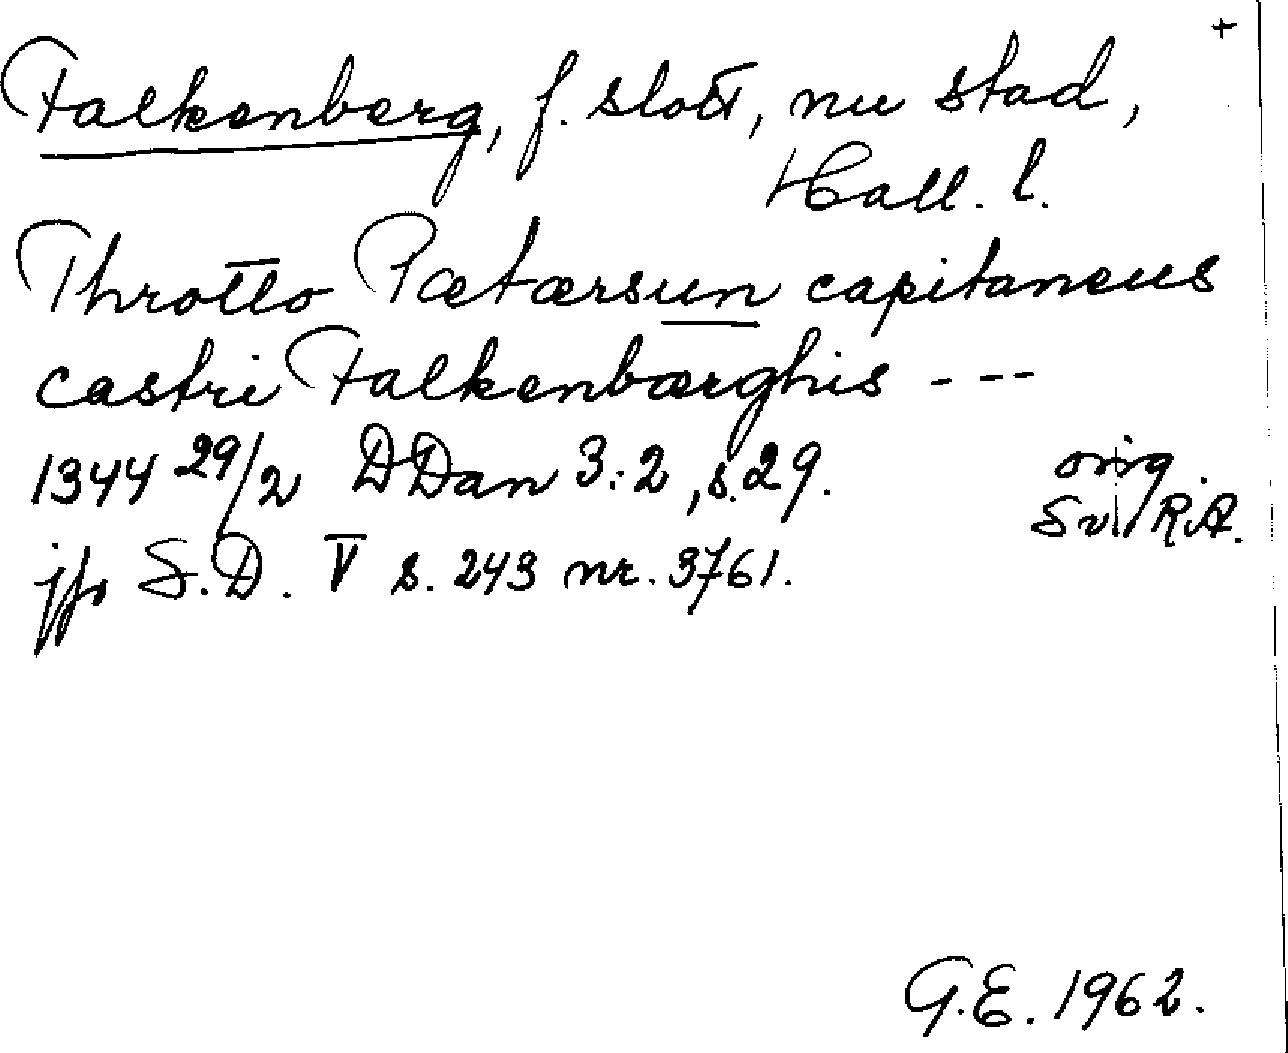 +
Falkenberg, f. slott, nu stad,
Hall. l.
Throtto Pætærsun capitaneus
castri Falkenbærghis ---
1344 29/2 DDan 3:2, s. 29. orig.
Sv. R.A.
jfr S.D. V s. 243 nr. 3761.
G.E. 1962.